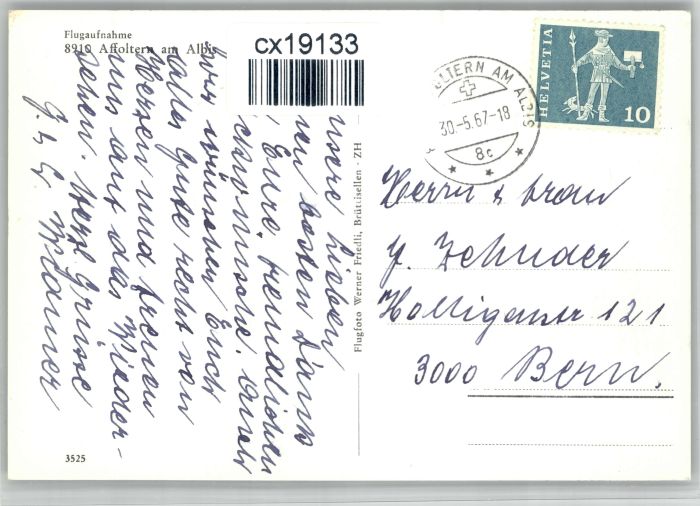 Flugaufnahme
8910 Affoltern am Albis
cx19133
LTERN AM ALBIS
30.-5.67-18
8c
HELVETIA
10
Meere Lieben
besten Dank
Eure freundlichen
wünsche. Auch
wir wünschen Euch
alles Gute recht von
Herzen und freuen
uns auf das Wieder-
sehen. Herz. Grüsse
G. & E. Widmer
Flugfoto Werner Friedli, Brüttisellen - ZH
Herrn & Frau
Y. Zehnder
Holligenstr 121
3000 Bern.
3525